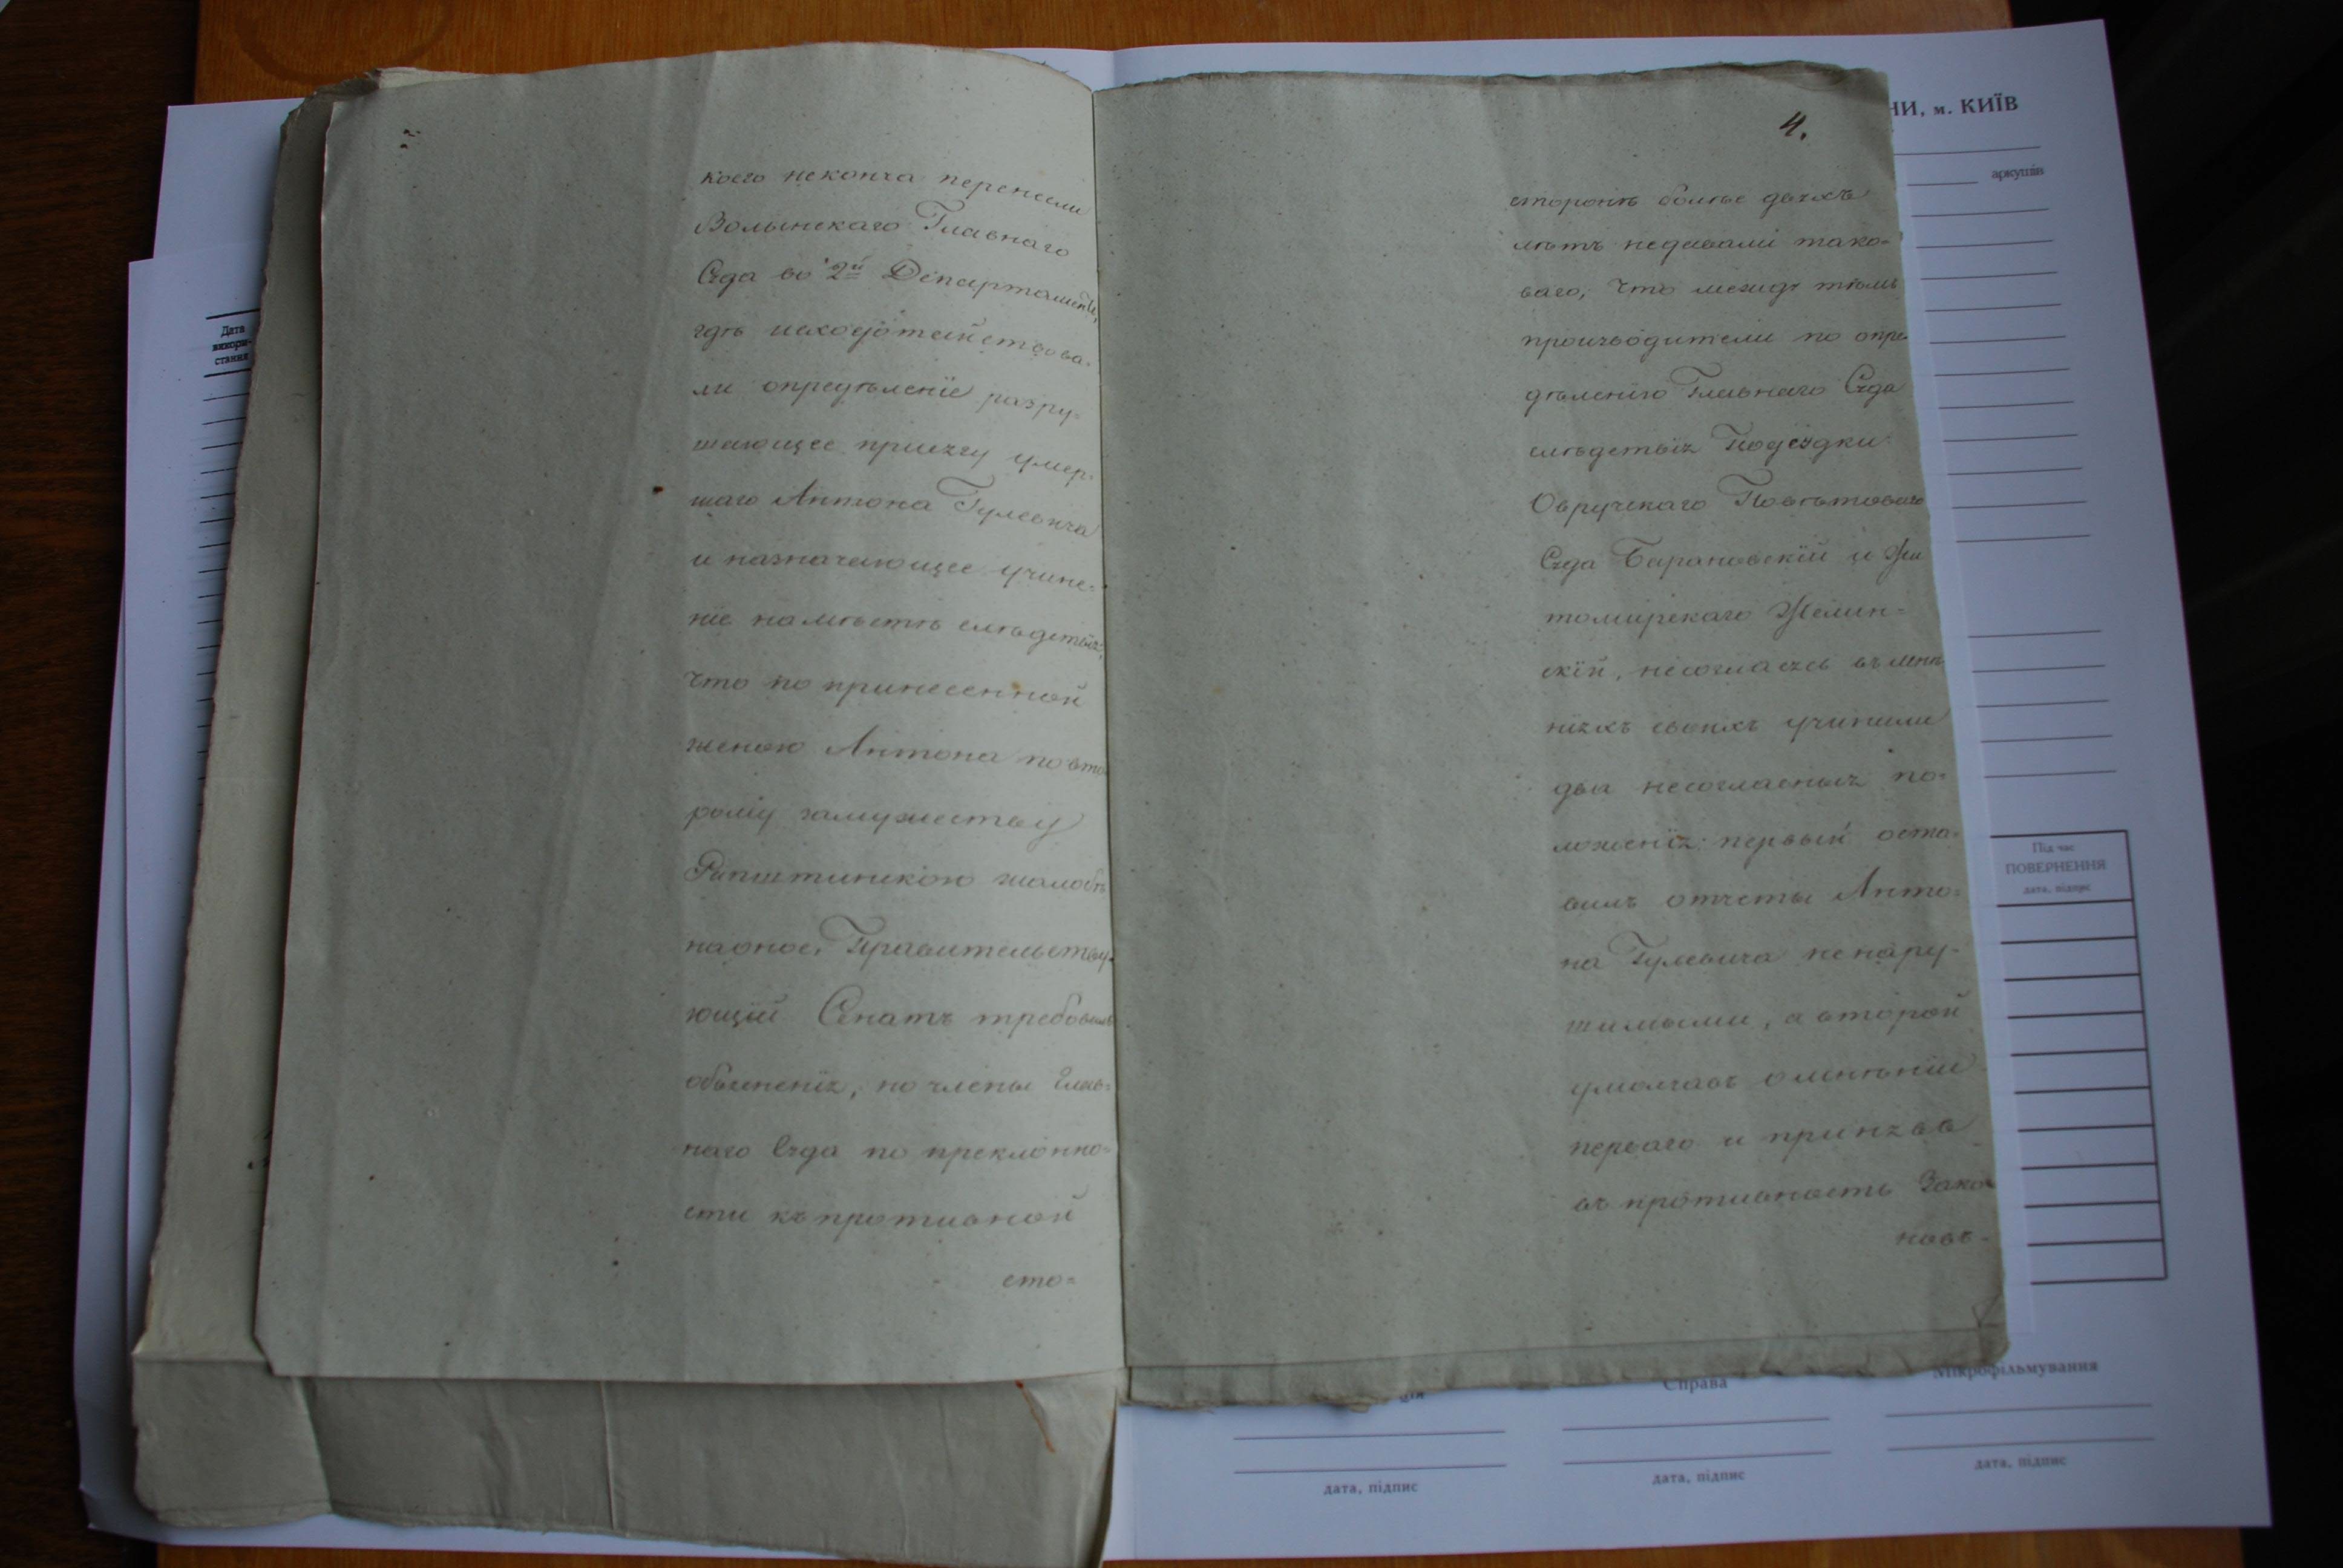 коего неконча перенесли
Волынскаго Главнаго
Суда во 2й Департаментъ,
гдѣ исходотайствова-
ли опредѣленїе разру-
шающее присягу умер-
шаго Антона Гулевича
и назначающее учине-
нїе намѣстѣ слѣдствїя,
что по принесенной
женою Антона по вто-
рому замужеству
жалобѣ
наоное, Правительству-
ющїй Сенатъ требовалъ
объясненїя, но члены Глав-
наго Суда по преклонно-
сти къ противной
сто=
4.
сторонѣ болѣе двухъ
лѣтъ недавали тако-
ваго, что между тѣмъ
производители по опре
дѣленїю Главнаго Суда
слѣдствїя Подсудки
Овручскаго Повѣтоваго
Суда Барановскїй и Жи
томирскаго
скїй, несогласясь въ мнѣ
нїяхъ своихъ учинили
два несогласныя по-
ложенїя: первый оста-
вилъ отчеты Анто-
на Гулевича ненару-
шимыми, а второй
умолчавъ о мнѣнїи
перваго и принявъ
въ противность Зако-
новъ-
Дата
викори-
стання
НИ, м. КИЇВ
аркушів
Під час
ПОВЕРНЕННЯ
дата, підпис
Справа
Мікрофільмування
дата, підпис
дата, підпис
дата, підпис